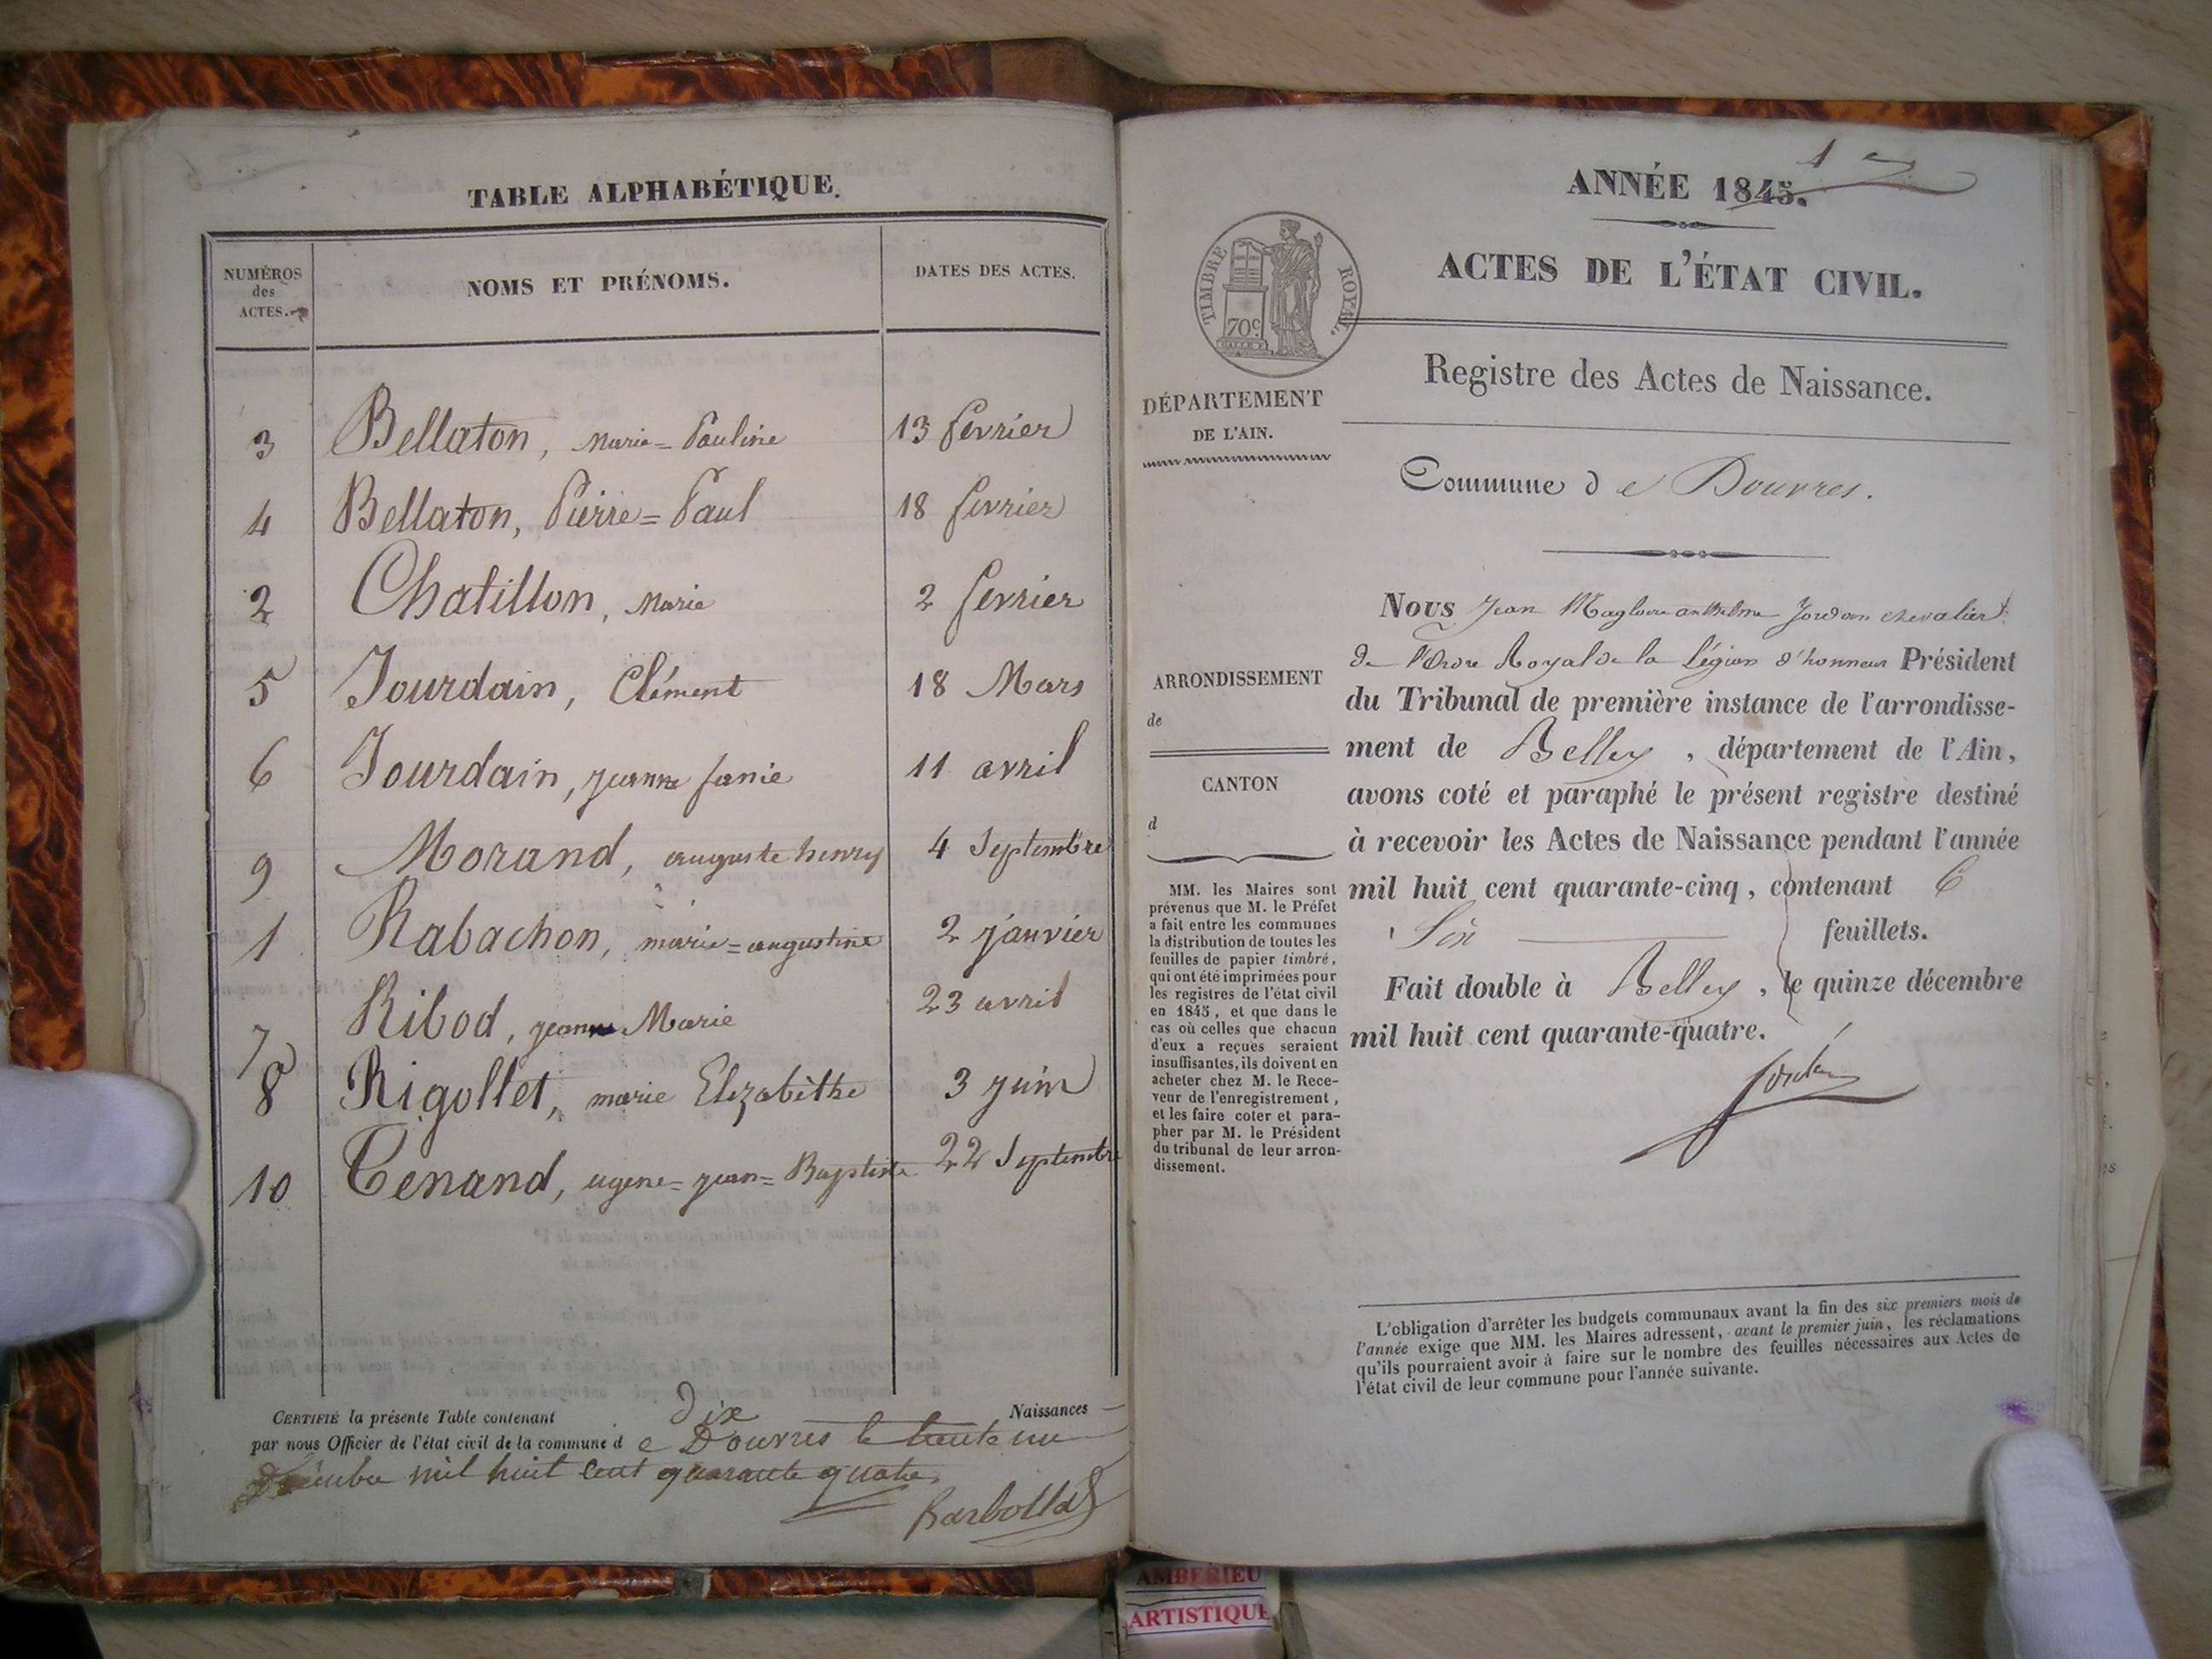 TABLE ALPHABÉTIQUE.
NUMÉROS
des
ACTES.
NOMS ET PRÉNOMS.
DATES DES ACTES.
3 Bellaton, Marie=Pauline 13 février
4 Bellaton, Pierre=Paul 18 février
2 Chatillon, Marie 2 février
5 Jourdain, Clément 18 Mars
6 Jourdain, jeanne fanie 11 avril
9 Morand, auguste henry 4 Septembre
1 Rabachon, marie=augustine 2 janvier
7 Ribod, jeanne Marie 23 avril
8 Rigollet, marie Elizabéthe 3 juin
10 Tenand, ugene=jean=Baptiste 22 Septembre
CERTIFIÉ la présente Table contenant dix Naissances
par nous Officier de l'état civil de la commune d e Douvres le trente un
Décembre mil huit cent quarante quatre.
1er
ANNÉE 1845.
TIMBRE ROYAL.
70c
ACTES DE L'ÉTAT CIVIL.
Registre des Actes de Naissance.
DÉPARTEMENT
DE L'AIN.
Commune d e Douvres.
ARRONDISSEMENT
de
CANTON
d
MM. les Maires sont
prévenus que M. le Préfet
a fait entre les communes
la distribution de toutes les
feuilles de papier timbré,
qui ont été imprimées pour
les registres de l'état civil
en 1845, et que dans le
cas où celles que chacun
d'eux a reçues seraient
insuffisantes, ils doivent en
acheter chez M. le Rece-
veur de l'enregistrement,
et les faire coter et para-
pher par M. le Président
du tribunal de leur arron-
dissement.
Nous Jean Magloire anthelme Jordan chevalier
de l'Ordre Royal de la Légion d'honneur Président
du Tribunal de première instance de l'arrondisse-
ment de Belley, département de l'Ain,
avons coté et paraphé le présent registre destiné
à recevoir les Actes de Naissance pendant l'année
mil huit cent quarante-cinq, contenant 6
Six feuillets.
Fait double à Belley, le quinze décembre
mil huit cent quarante-quatre.
Jordan
L'obligation d'arrêter les budgets communaux avant la fin des six premiers mois de
l'année exige que MM. les Maires adressent, avant le premier juin, les réclamations
qu'ils pourraient avoir à faire sur le nombre des feuilles nécessaires aux Actes de
l'état civil de leur commune pour l'année suivante.
AMBERIEU
ARTISTIQUE